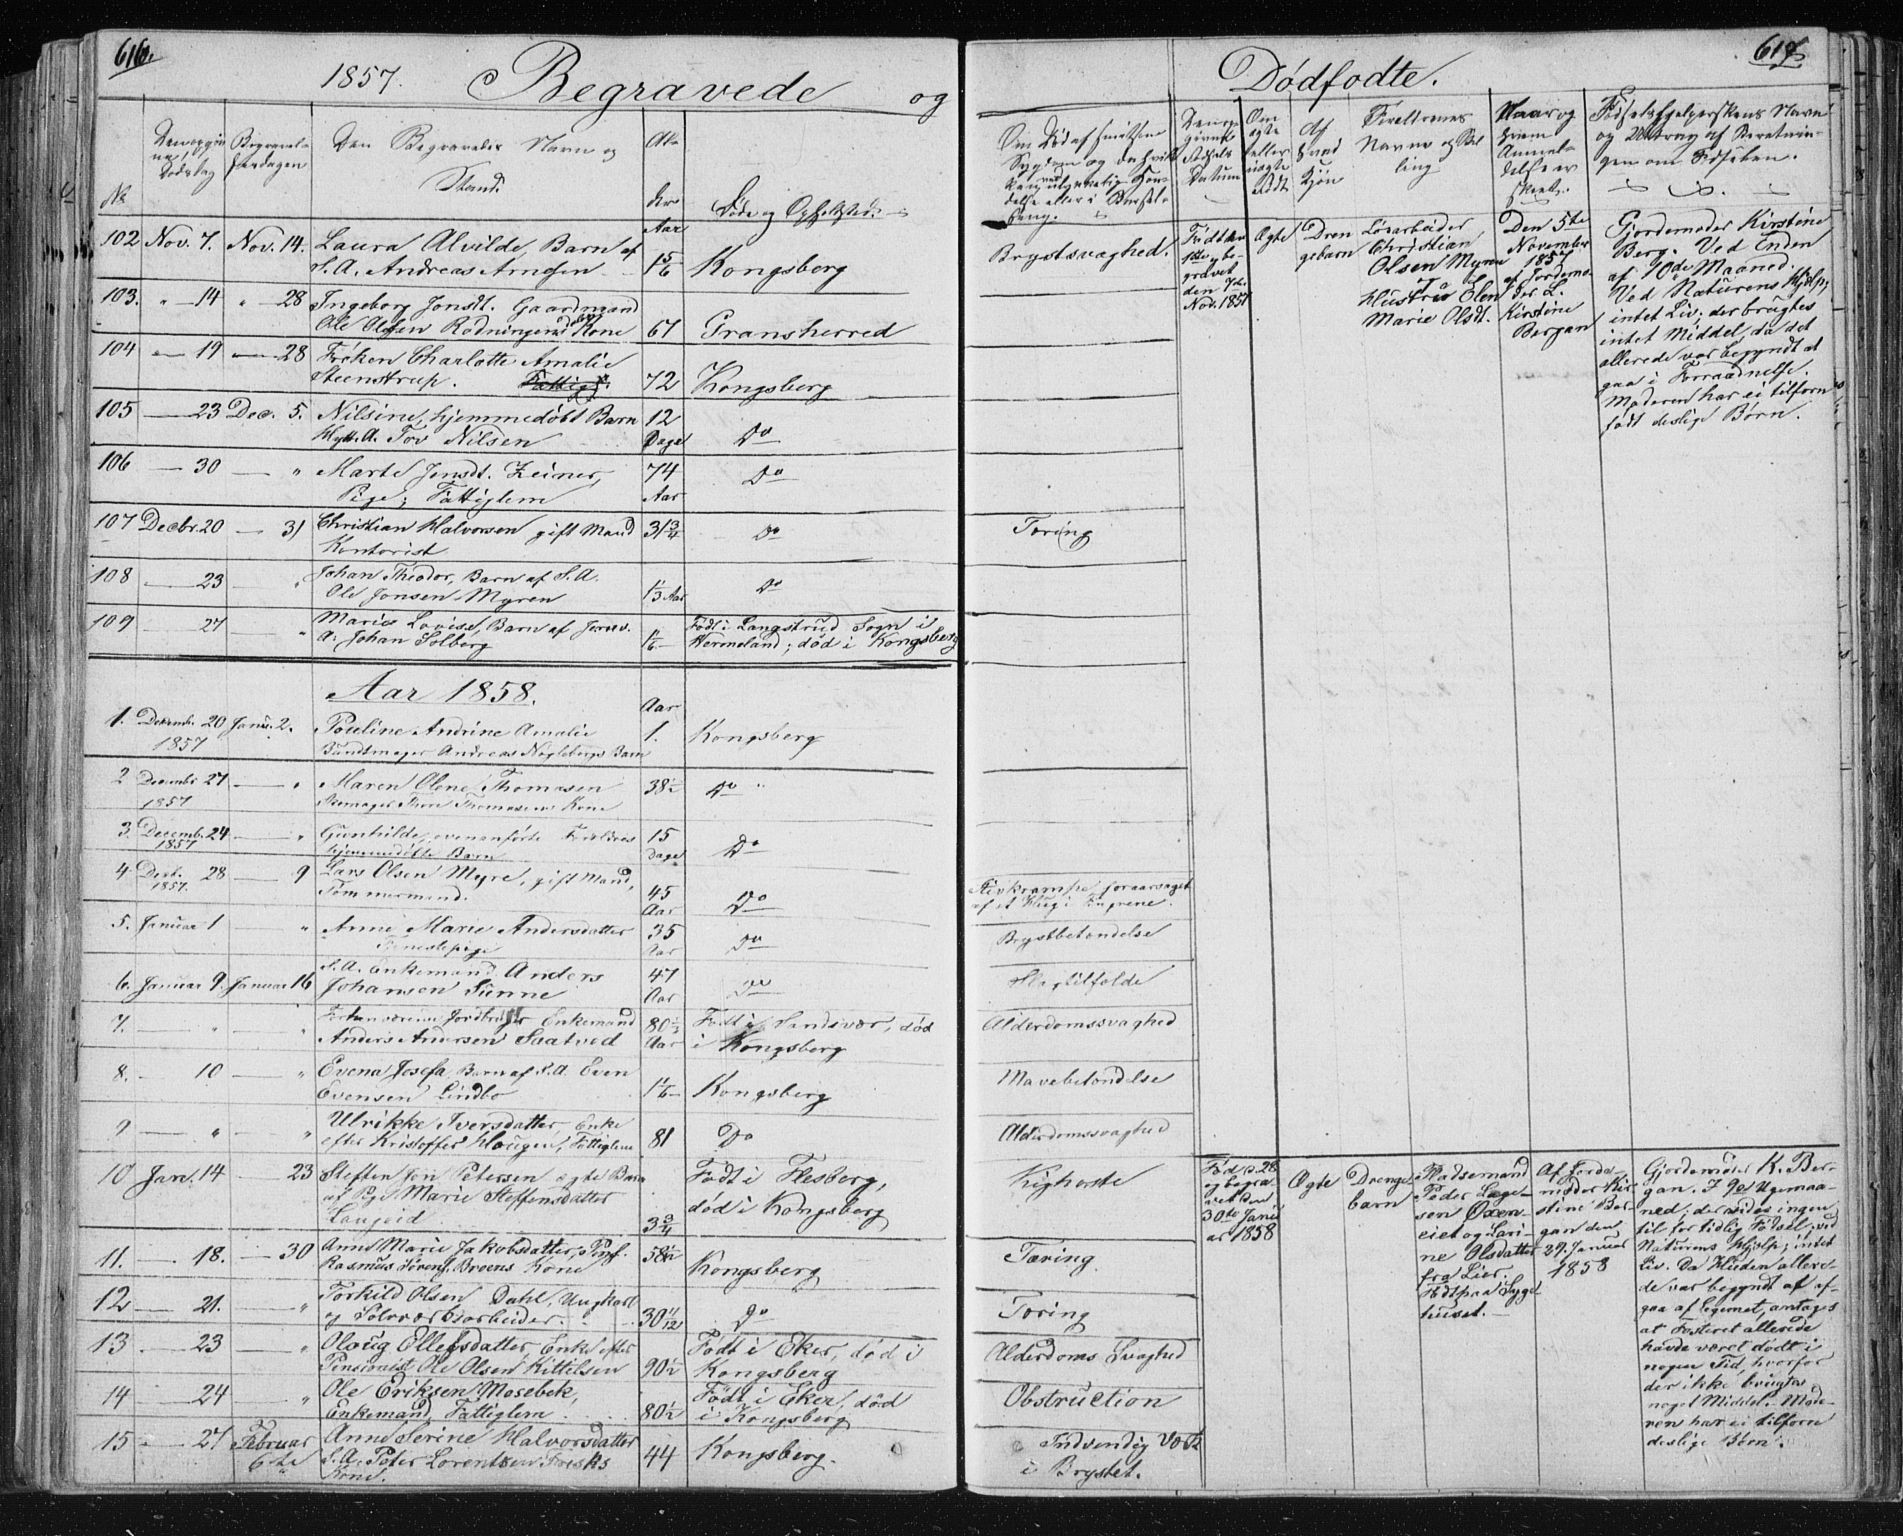 616.
1857. Begravede og
No.
Den Begravedes Navn og
Stand.
Aar
102 Nov. 7. Nov. 14. Laura Alvilde, Barn af
S. A. Andreas Arnesen 1 5/6 Kongsberg
103. " 14 " 28 Ingeborg Jonsdt. Gaardmand
Ole Olsen Rodningens Kone 67 Gransherred
104 — 19 — 28 Frøken Charlotte Amalie
Steenstrup. Fattig. 72 Kongsberg
105 — 23 Dec. 5. Nilsine, hjemmedøbt Barn 12
Hytt. A. Tov Nilsen Dage Do
106 — 30 — " Marte Jensdt. Zeiner, 74
Pige; Fattiglem Aar Do
107 Decbr. 20 — 31 Christian Halvorsen gift Mand 31 3/4 Do
Kontorist
108 — 23 — " Johan Theodor, Barn af S. A.
Ole Jonsen Myren 1/3 Aar Do
109 — 27 — " Marie Lovise, Barn af Jernv. Født i Langstrud Sogn i
A. Johan Solberg Vermeland; død i Kongsberg
Aar 1858.
Aar
1. Decemb. 20 Janu. 2. Pauline Andrine Amalie 1. Kongsberg
1857 Bundtmager Andreas Nøglebergs Barn
2 Decembr 27 — " Maren Olene Thomasen 38 1/2 Do "
1857 Thomasens Kone
3. Decemb. 24 — " Gunhilde, ovenanførte Forældres 15 Do
1857 hjemmedøbte Barn Dage
4 Decbr. 28 — 9 Lars Olsen Myre, gift Mand, 45 Do
1857. Tømmermand. Aar
5. Januar 1 — " Anne Marie Andersdatter 35 Do
Tjenestepige Aar
6. Januar 9. Januar 16 S. A. Enkemand Anders 47 Do
Johansen Sünne Aar
7. — " — " Forhenværende Jordbruger Enkemand 80 1/2 Født i Sandsvær, død
Anders Andersen Saatved Aar i Kongsberg
8. — 10 — " Evena Josefa, Barn af S. A. Even
Evensen Lindbo 1 1/6 Kongsberg
9 — " — " Ulrikke Iversdatter, Enke
efter Kristoffer Hougen, Fattiglem 81 Do
10 Jan. 14 — 23 Steffen Jon Petersen ægte Barn Født i Flesberg,
af Pige Marie Steffensdatter død i Kongsberg
Laugeid 3 3/4
11. — 18. — 30 Anne Marie Jakobsdatter, Pens.
Rasmus Sørens. Broens Kone 58 1/2 Kongsberg
12 — 21. — " Torkild Olsen Dahl, Ungkarl
og Sølvværksarbeider. 30 11/12 Do
13 — 23 — " Olaug Ellefsdatter, Enke efter Født i Eker, død i
Pensionist Ole Olsen Kittelsen 90 1/2 Kongsberg
14 — 24 — " Ole Eriksen Mosebek, Født i Eker, død
Enkemand, Fattiglem 80 1/2 i Kongsberg
15 — 27 Februar Anne Serine Halvorsdatter
6te S. A. Peter Lorentsen Frisks 44 Kongsberg.
Kone.
617
Dødfødte.
Forældrenes
Navne og Stilling
Naar og
hvem
Anmeldelse er
skeet.
Fødselshjelperskens Navn
og Udtrag af Beretningen
om Fødselen.
Brystsvaghed.
Født den
1ste, begravet
den 7de
Nov. 1857
Ægte
Drengebarn
Løsarbeider
Christian
Olsen Myren
Hustru Elen
Marie Olsdt.
Den 5te
November
1857
af Jordemoder L.
Kirstine
Bergan
Gjordemoder Kirstine
Berg. Ved Enden
af 10de Maaned.
Ved Naturens Hjelp;
intet Liv; der brugtes
intet Middel, da det
allerede var begyndt at
gaa i Forraadnelse.
Moderen har ei tilforn
født deslige Børn.
Tæring
Stivkrampe, foraarsaget
af et Hug i Fingrene.
Brystbetændelse
Slagtilfælde
Alderdomssvaghed
Mavebetændelse
Alderdomssvaghed
Kighoste
Tæring.
Tæring
Alderdoms Svaghed
Obstruction
Indvendig Værk
i Brystet.
Fød. d. 28
og begravet den
30te Januar
1858
Ægte
Drengebarn
Pladsemand
Peder Larsen Oxeneiet
og Larine Olsdatter
fra Lier.
Født paa Sygehuset.
Af Jordemoder Kirstine Bergan den
29. Januar
1858
Gjordemoder K. Bergan. I 9de Ugemaaned;
der vides ingen
til for tidlig Fødsel; ved
Naturens Hjelp; intet
Liv. Da Huden allerede
var begyndt at afgaa
af Legemet, antages
at Fosteret allerede
havde været dødt i
nogen Tid, hvorfor
der ikke brugtes
noget Middel. Moderen
har ei tilforn
deslige Børn.